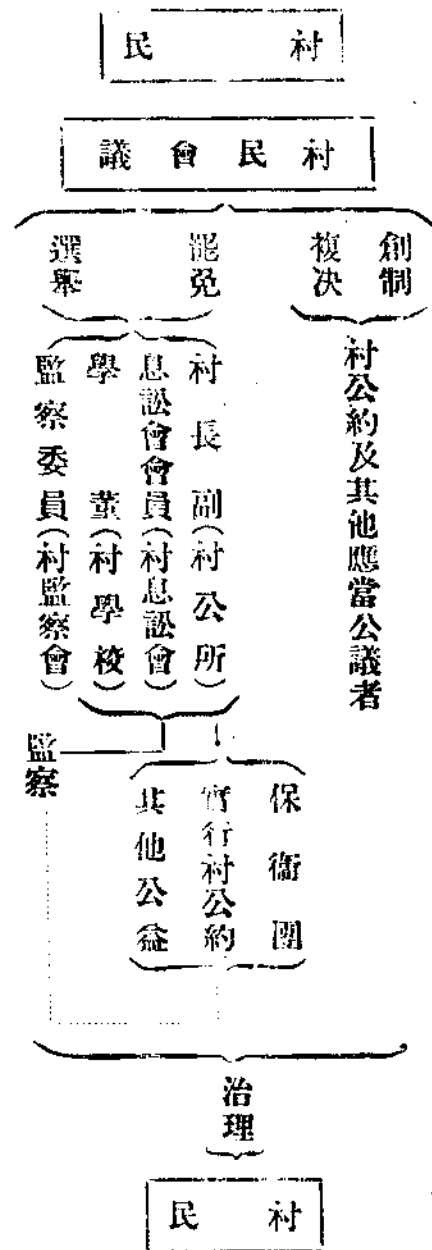 村民
村民會議
創制
複決
罷免
選舉
村公約及其他應當公議者
村長副(村公所)
息訟會會員(村息訟會)
學董(村學校)
監察委員(村監察會)
監察
保衞團
實行村公約
其他公益
治理
村民